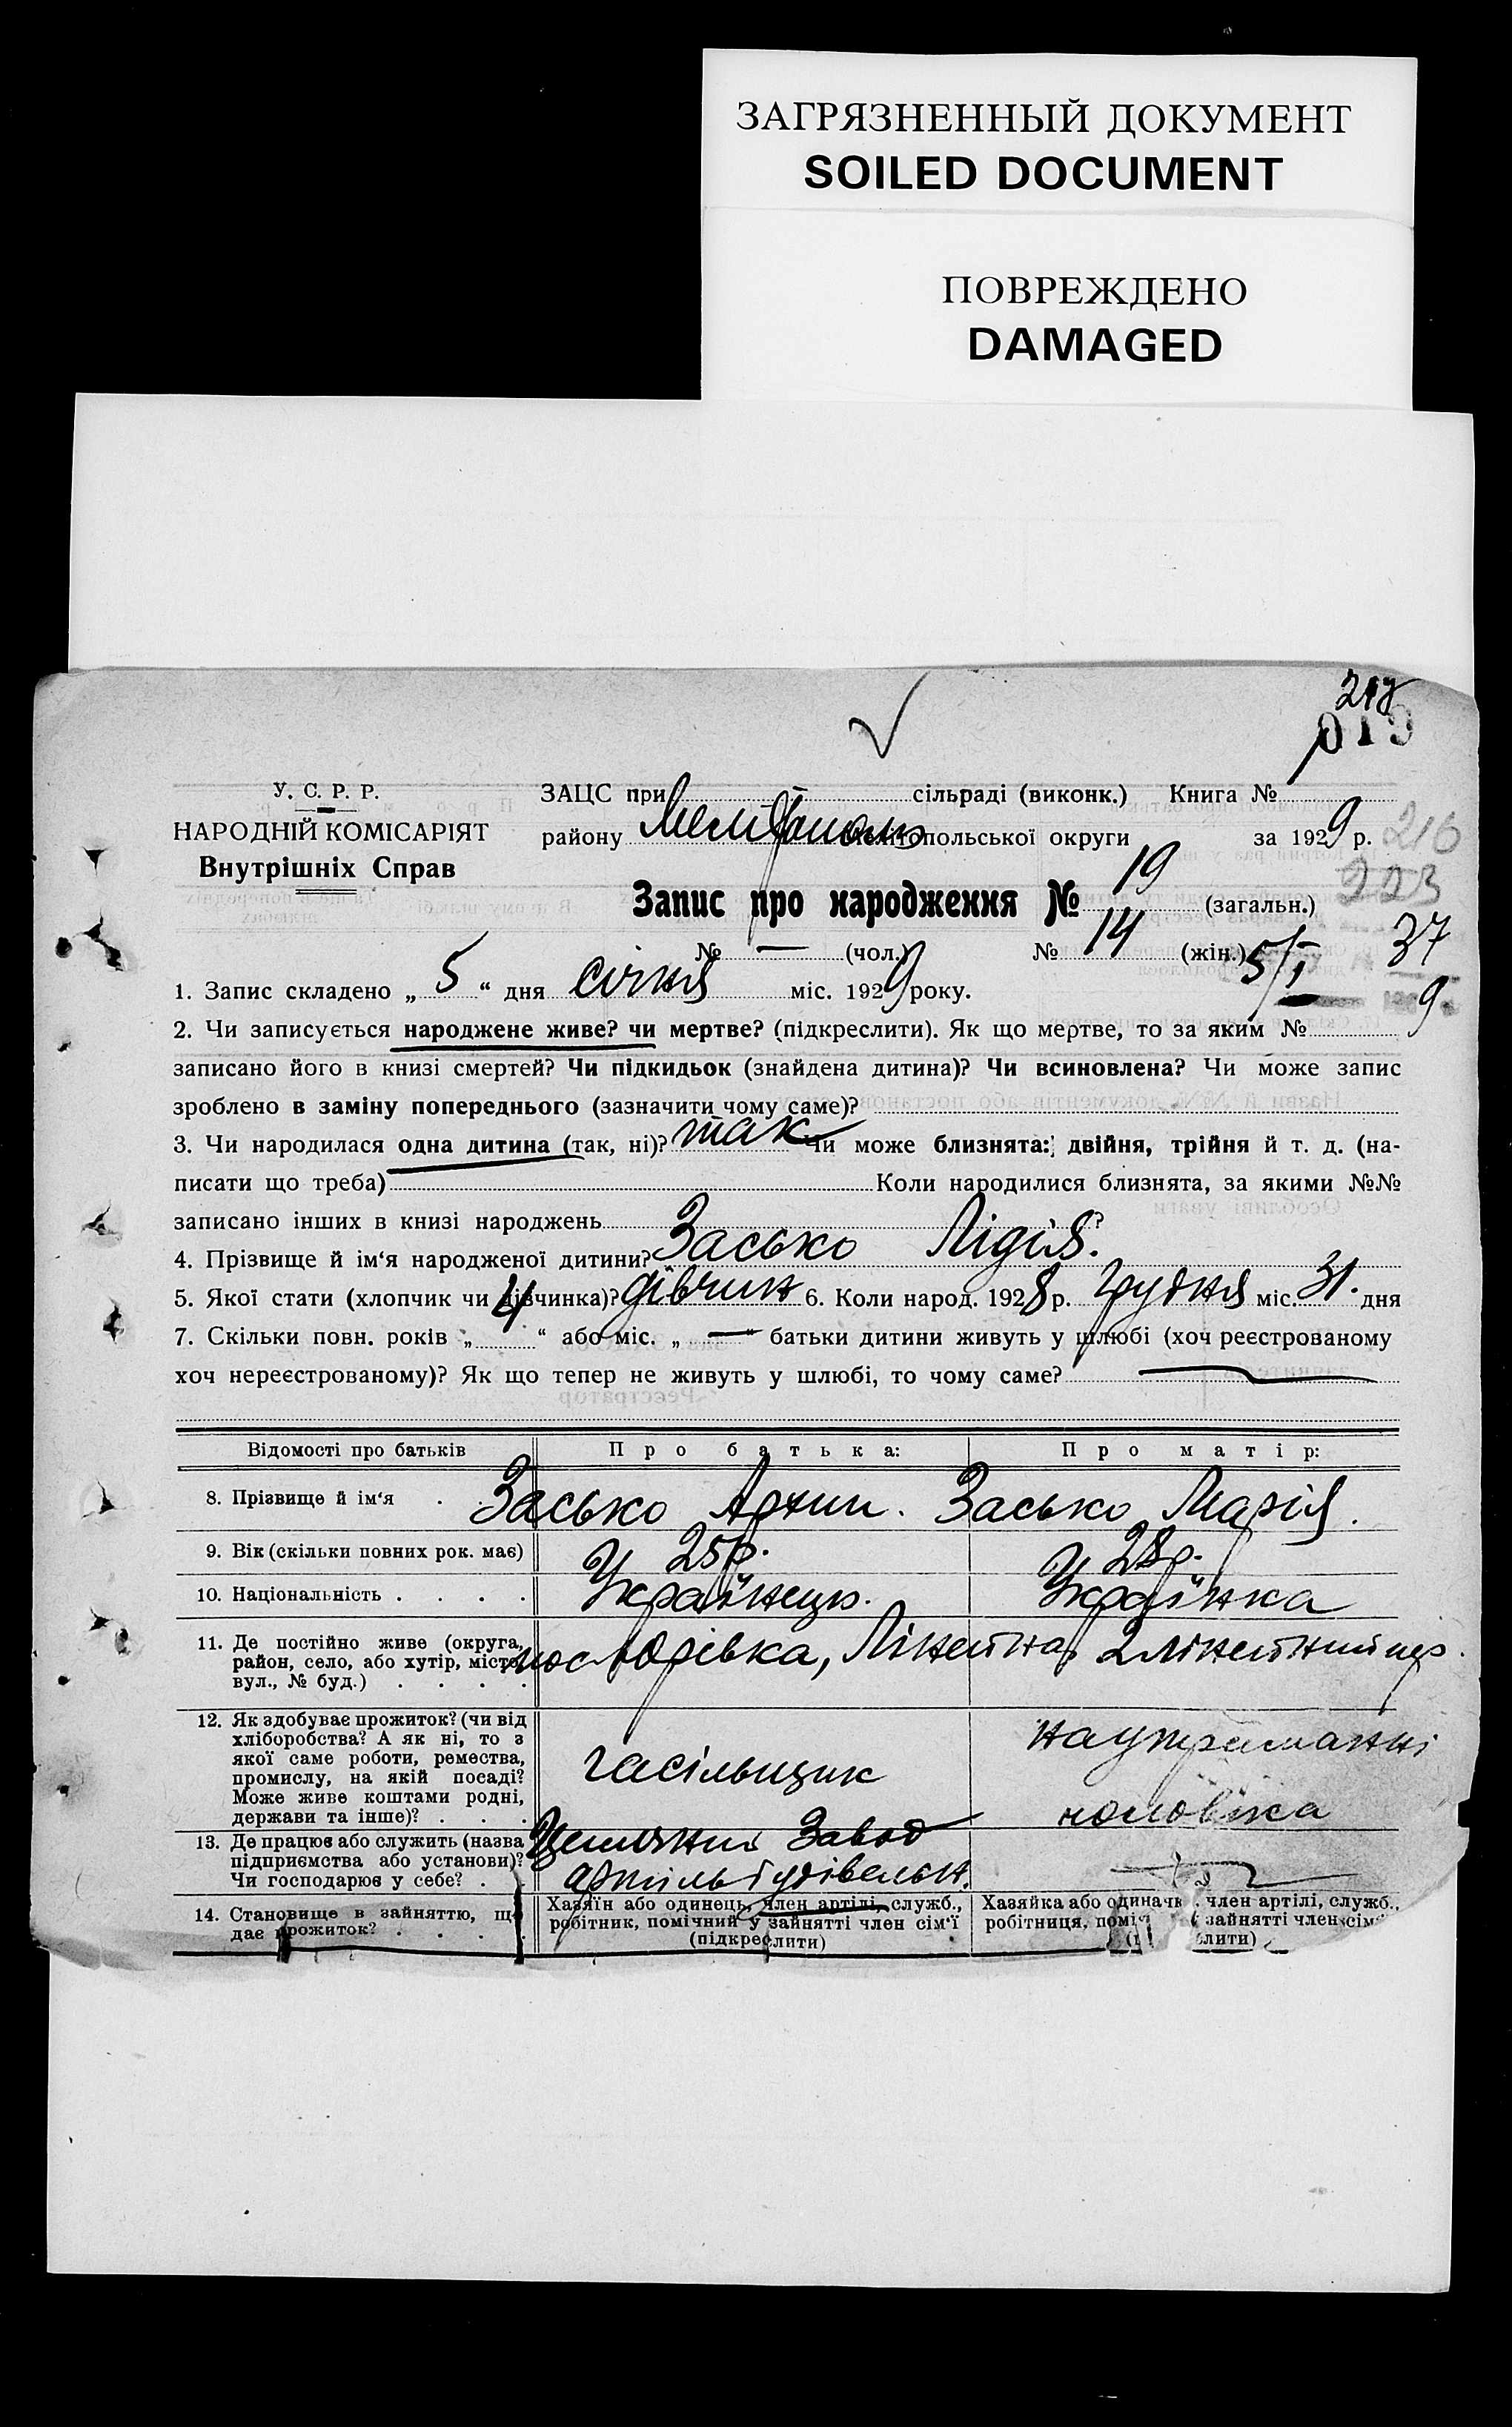 ЗАГРЯЗНЕННЫЙ ДОКУМЕНТ
SOILED DOCUMENT
ПОВРЕЖДЕНО
DAMAGED
У. С. Р. Р.
НАРОДНІЙ КОМІСАРІЯТ
Внутрішніх Справ
ЗАЦС при сільраді (виконк.) Книга №
району Мелітополь Мелітопольської округи за 1929 р.
216
223
Запис про народження № 19 (загальн.)
№ — (чол.) № 14 (жін.) 5/I 37
9
1. Запис складено „ 5 “ дня січня міс. 1929 року.
2. Чи записується народжене живе? чи мертве? (підкреслити). Як що мертве, то за яким №
записано його в книзі смертей? Чи підкидьок (знайдена дитина)? Чи всиновлена? Чи може запис
зроблено в заміну попереднього (зазначити чому саме)?
3. Чи народилася одна дитина (так, ні)? так Чи може близнята: двійня, трійня й т. д. (на-
писати що треба) Коли народилися близнята, за якими №№
записано інших в книзі народжень ?
4. Прізвище й ім‘я народженої дитини? Засько Лідія.
5. Якої стати (хлопчик чи дівчинка)? дівчин 6. Коли народ. 1928 р. грудня міс. 31. дня
7. Скільки повн. років „ 4 “ або міс. „ — “ батьки дитини живуть у шлюбі (хоч реєстрованому
хоч нереєстрованому)? Як що тепер не живуть у шлюбі, то чому саме? —
Відомості про батьків Про батька: Про матір:
8. Прізвище й ім‘я . . Засько Архип. Засько Марія.
9. Вік (скільки повних рок. має) 25р. 28р.
10. Національність . . . . Українець. Українка
11. Де постійно живе (округа,
район, село, або хутір, місто,
вул., № буд.) . . . .
пос. Юрівка, Лінейна, 2 лінейний пер.
12. Як здобуває прожиток? (чи від
хліборобства? А як ні, то з
якої саме роботи, ремества,
промислу, на якій посаді?
Може живе коштами родні,
держави та інше)? . . .
гасільщик
на утриманні
чоловіка
13. Де працює або служить (назва
підприємства або установи)?
Чи господарює у себе? . .
Завод
артіль будівельн.
14. Становище в зайняттю, що
дає прожиток? . . . .
Хазяїн або одинець, член артілі, служб.,
робітник, помічний у зайнятті член сім‘ї
(підкреслити)
Хазяйка або одиначк член артілі, служб.,
робітниця, поміч зайнятті член сім‘
лити)